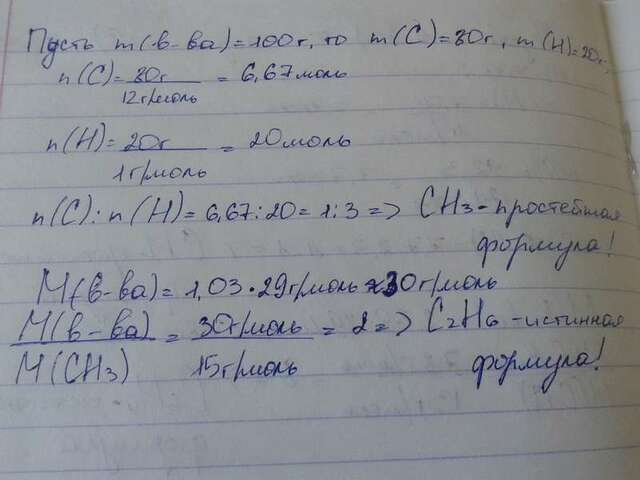 Пусть m(в-ва)=100г, то m(C)=80г, m(H)=20г,
n(C)=80г/12г/моль = 6,67моль
n(H)=20г/1г/моль = 20моль
n(C):n(H)=6,67:20=1:3=> CH3-простейшая
формула!
M(в-ва)=1,03·29г/моль≈30г/моль
M(в-ва)/M(CH3) = 30г/моль/15г/моль = 2 => C2H6-истинная
формула!